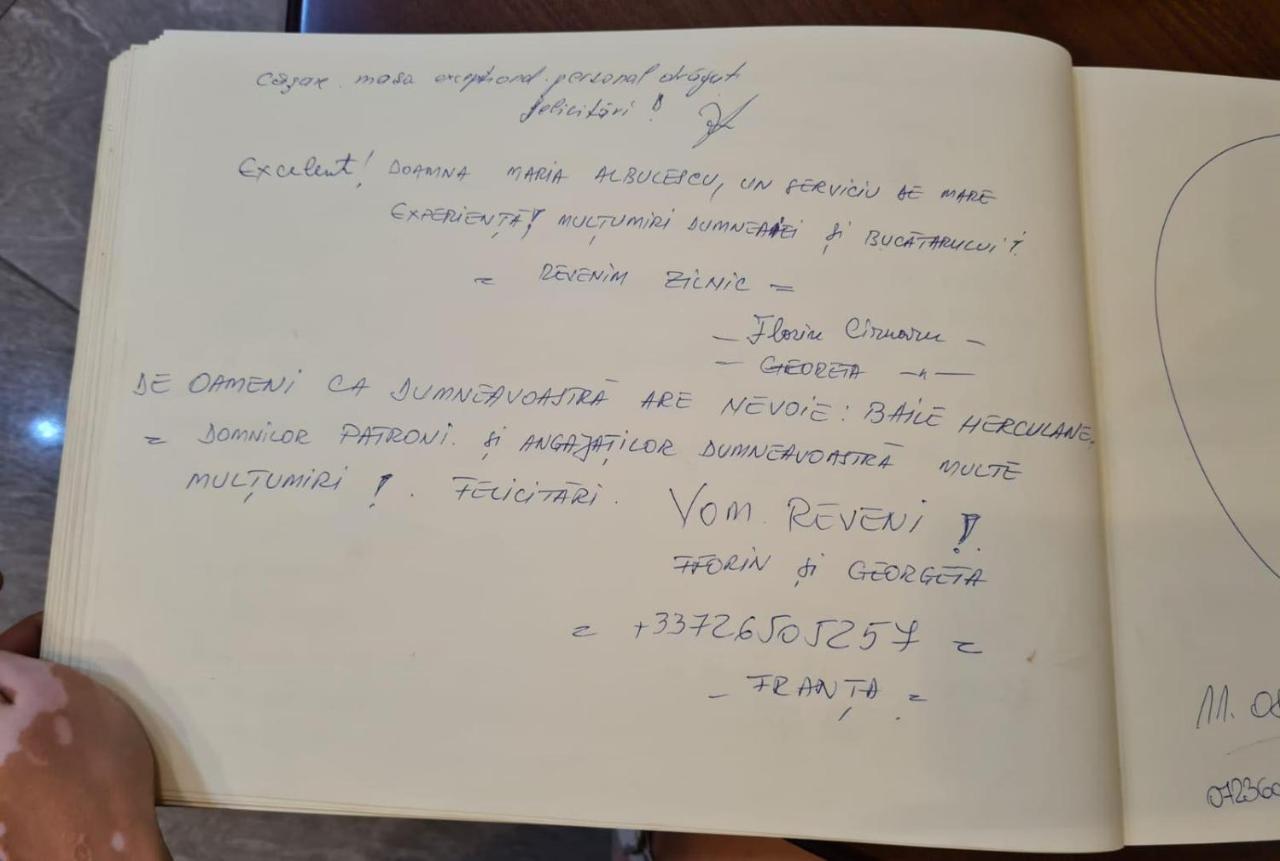 masa excepțional personal drăguț
felicitări !
Excelent! DOAMNA MARIA ALBULESCU, UN SERVICIU DE MARE
EXPERIENȚĂ! MULȚUMIRI DUMNEAEI și BUCĂTARULUI!
= REVENIM ZILNIC =
- Florin -
- GEORETA -"-
DE OAMENI CA DUMNEAVOASTRĂ ARE NEVOIE: BAILE HERCULANE.
= DOMNILOR PATRONI. și ANGAJAȚILOR DUMNEAVOASTRĂ MULTE
MULȚUMIRI !. FELICITĂRI.
VOM. REVENI !
FLORIN și GEORGETA
= +33726505257 =
- FRANȚA =
11. 08
072360